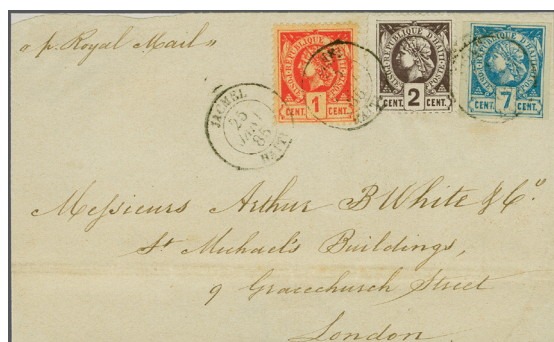 « p. Royal Mail »
RÉPUBLIQUE D'HAITI
CENT. 1 CENT.
RÉPUBLIQUE D'HAITI
CENT. 2 CENT.
RÉPUBLIQUE D'HAITI
CENT. 7 CENT.
JACMEL
25
JANV
85
HAITI
Messieurs Arthur B White & Co.
St Michael's Buildings,
9 Gracechurch Street
London.